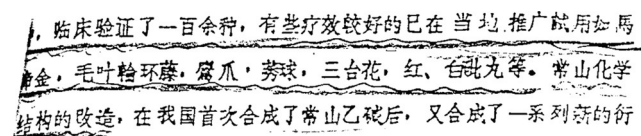 ，临床验证了一百余种，有些疗效较好的已在当地推广試用如馬
金，毛叶輪环藤，爪，三台花，红、白丸等。常山化学
结构的改造，在我国首次合成了常山乙碱后，又合成了一系列新的衍